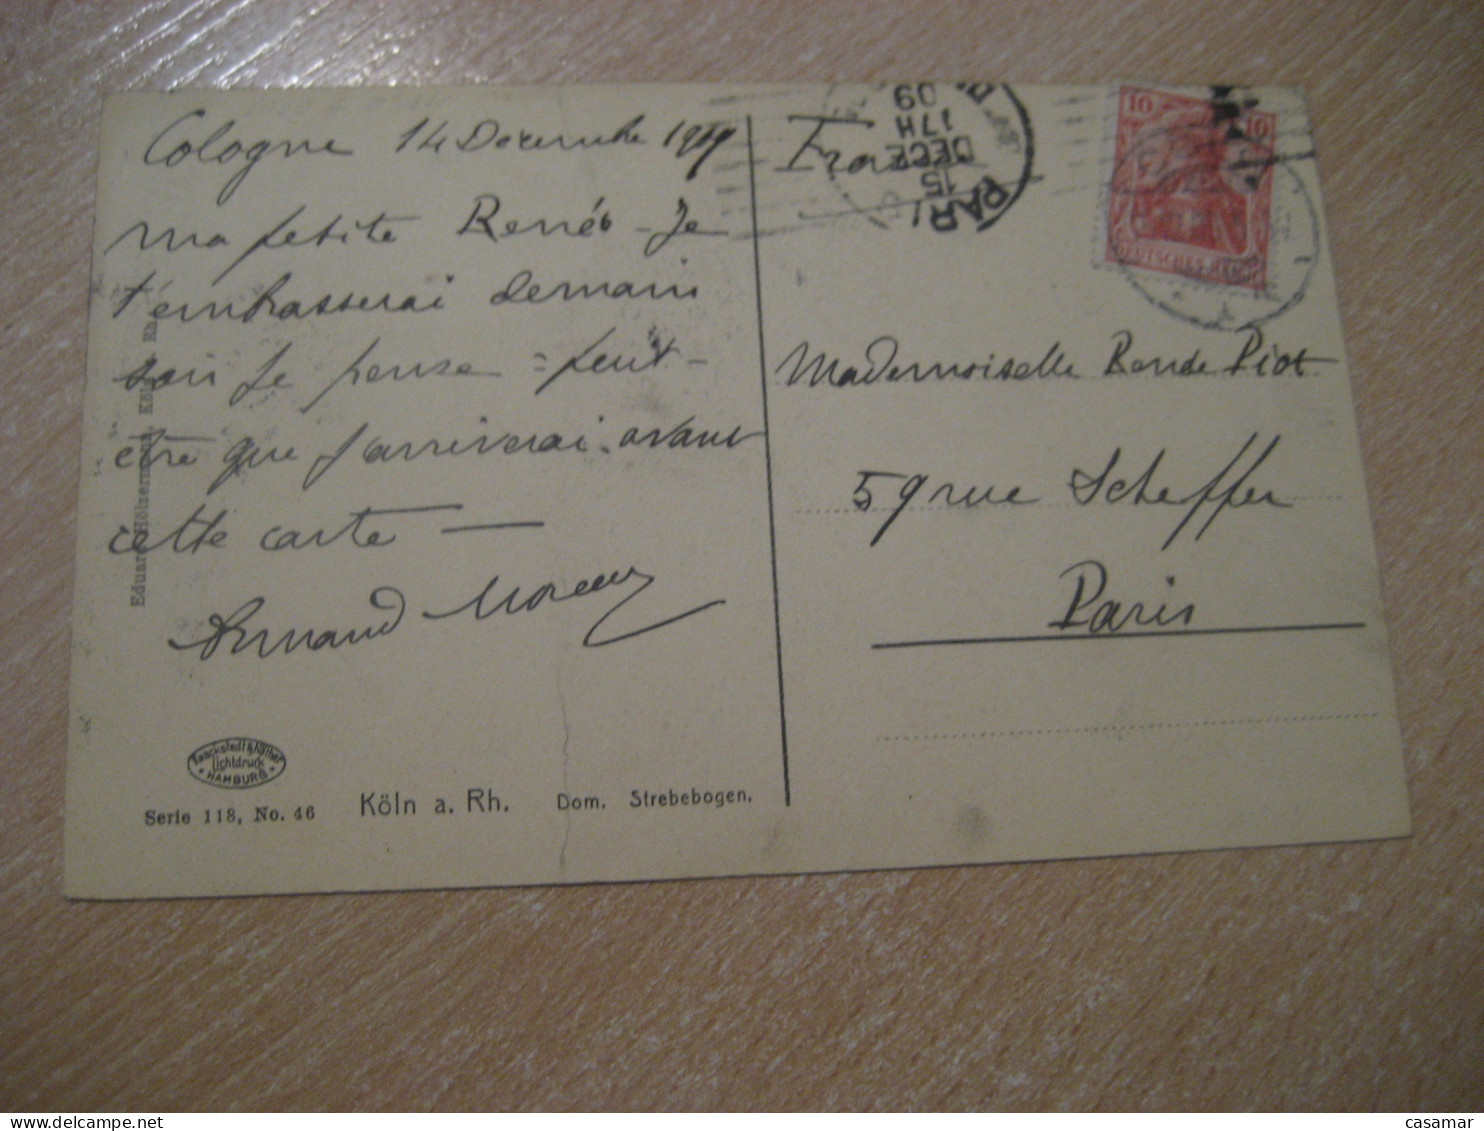 Cologne 14 Décembre 1909
ma petite Renée - Je
t'embrasserai demain
soir je pense = peut-
être que j'arriverai avant
cette carte —
Armand Moreau
Eduard Holzermann, Köln a. Rh.
Kaackstedt & Näther
Lichtdruck
HAMBURG
Serie 118, No. 46 Köln a. Rh. Dom. Strebebogen.
PARIS
17H
15
DECE
09
10 10
DEUTSCHES REICH
Mademoiselle Renée Piot
59 rue Scheffer
Paris
casamar